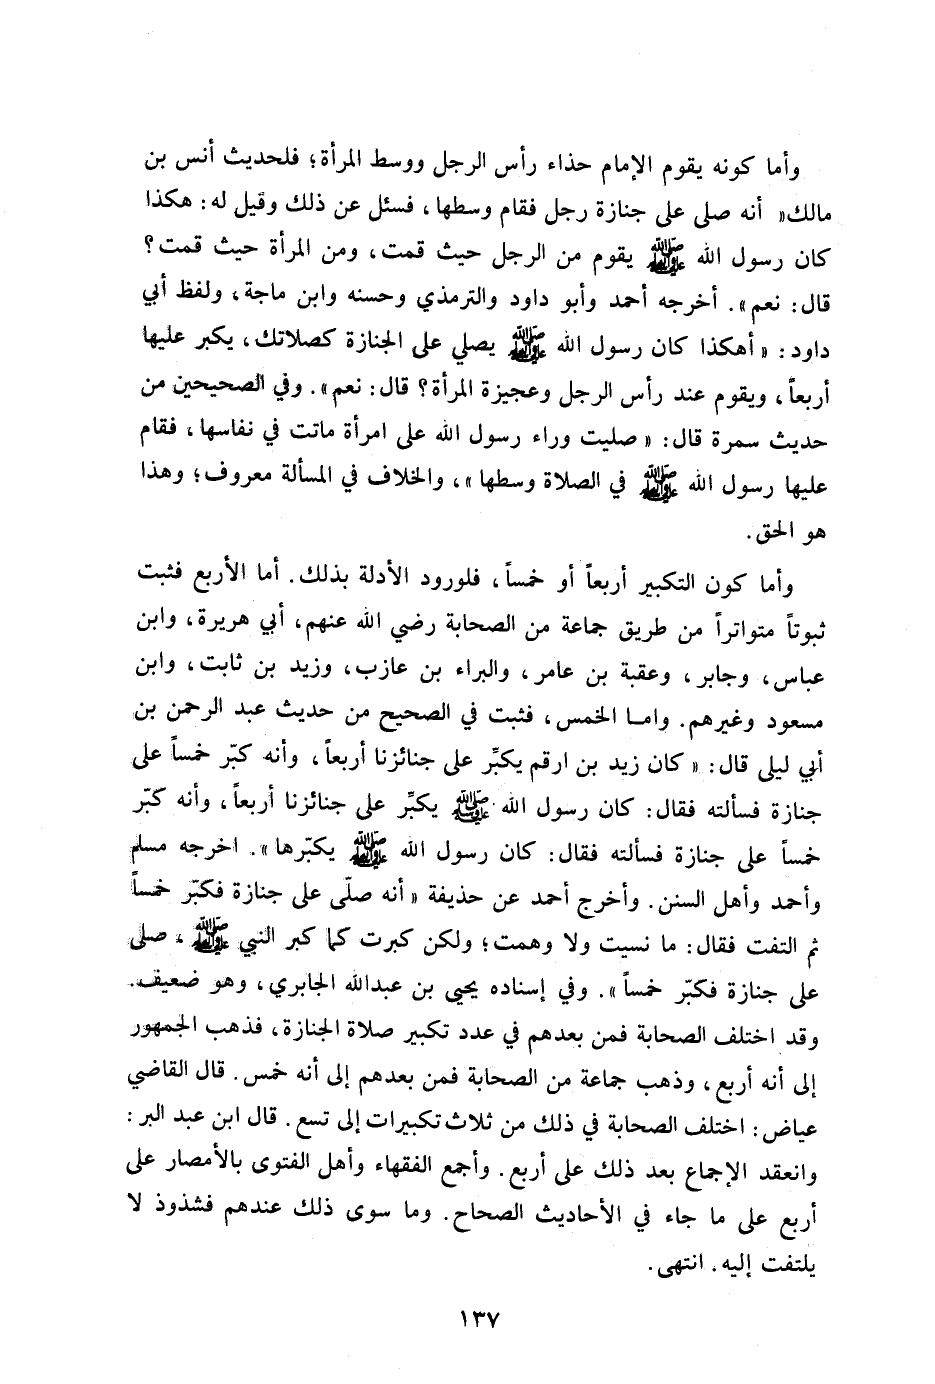 وأما كونه يقوم الإمام حذاء رأس الرجل ووسط المرأة؛ فلحديث أنس بن
مالك« أنه صلى على جنازة رجل فقام وسطها، فسئل عن ذلك وقيل له: هكذا
كان رسول الله ﷺ يقوم من الرجل حيث قمت، ومن المرأة حيث قمت؟
قال: نعم». أخرجه أحمد وأبو داود والترمذي وحسنه وابن ماجة، ولفظ أبي
داود: «أهكذا كان رسول الله ﷺ يصلي على الجنازة كصلاتك، يكبر عليها
أربعاً، ويقوم عند رأس الرجل وعجيزة المرأة؟ قال: نعم». وفي الصحيحين من
حديث سمرة قال: «صليت وراء رسول الله على امرأة ماتت في نفاسها، فقام
عليها رسول الله ﷺ في الصلاة وسطها»، والخلاف في المسألة معروف؛ وهذا
هو الحق.
وأما كون التكبير أربعاً أو خمساً، فلورود الأدلة بذلك. أما الأربع فثبت
ثبوتاً متواتراً من طريق جماعة من الصحابة رضي الله عنهم، أبي هريرة، وابن
عباس، وجابر، وعقبة بن عامر، والبراء بن عازب، وزيد بن ثابت، وابن
مسعود وغيرهم. واما الخمس، فثبت في الصحيح من حديث عبد الرحمن بن
أبي ليلى قال: «كان زيد بن ارقم يكبِّر على جنائزنا أربعاً، وأنه كبّر خمساً على
جنازة فسألته فقال: كان رسول الله ﷺ يكبِّر على جنائزنا أربعاً، وأنه كبّر
خمساً على جنازة فسألته فقال: كان رسول الله ﷺ يكبّرها». اخرجه مسلم
وأحمد وأهل السنن. وأخرج أحمد عن حذيفة «أنه صلّى على جنازة فكبّر خمساً
ثم التفت فقال: ما نسيت ولا وهمت؛ ولكن كبرت كما كبر النبي ﷺ، صلى
على جنازة فكبّر خمساً». وفي إسناده يحيى بن عبدالله الجابري، وهو ضعيف.
وقد اختلف الصحابة فمن بعدهم في عدد تكبير صلاة الجنازة، فذهب الجمهور
إلى أنه أربع، وذهب جماعة من الصحابة فمن بعدهم إلى أنه خمس. قال القاضي
عياض: اختلف الصحابة في ذلك من ثلاث تكبيرات إلى تسع. قال ابن عبد البر:
وانعقد الإجماع بعد ذلك على أربع. وأجمع الفقهاء وأهل الفتوى بالأمصار على
أربع على ما جاء في الأحاديث الصحاح. وما سوى ذلك عندهم فشذوذ لا
يلتفت إليه. انتهى.
١٣٧